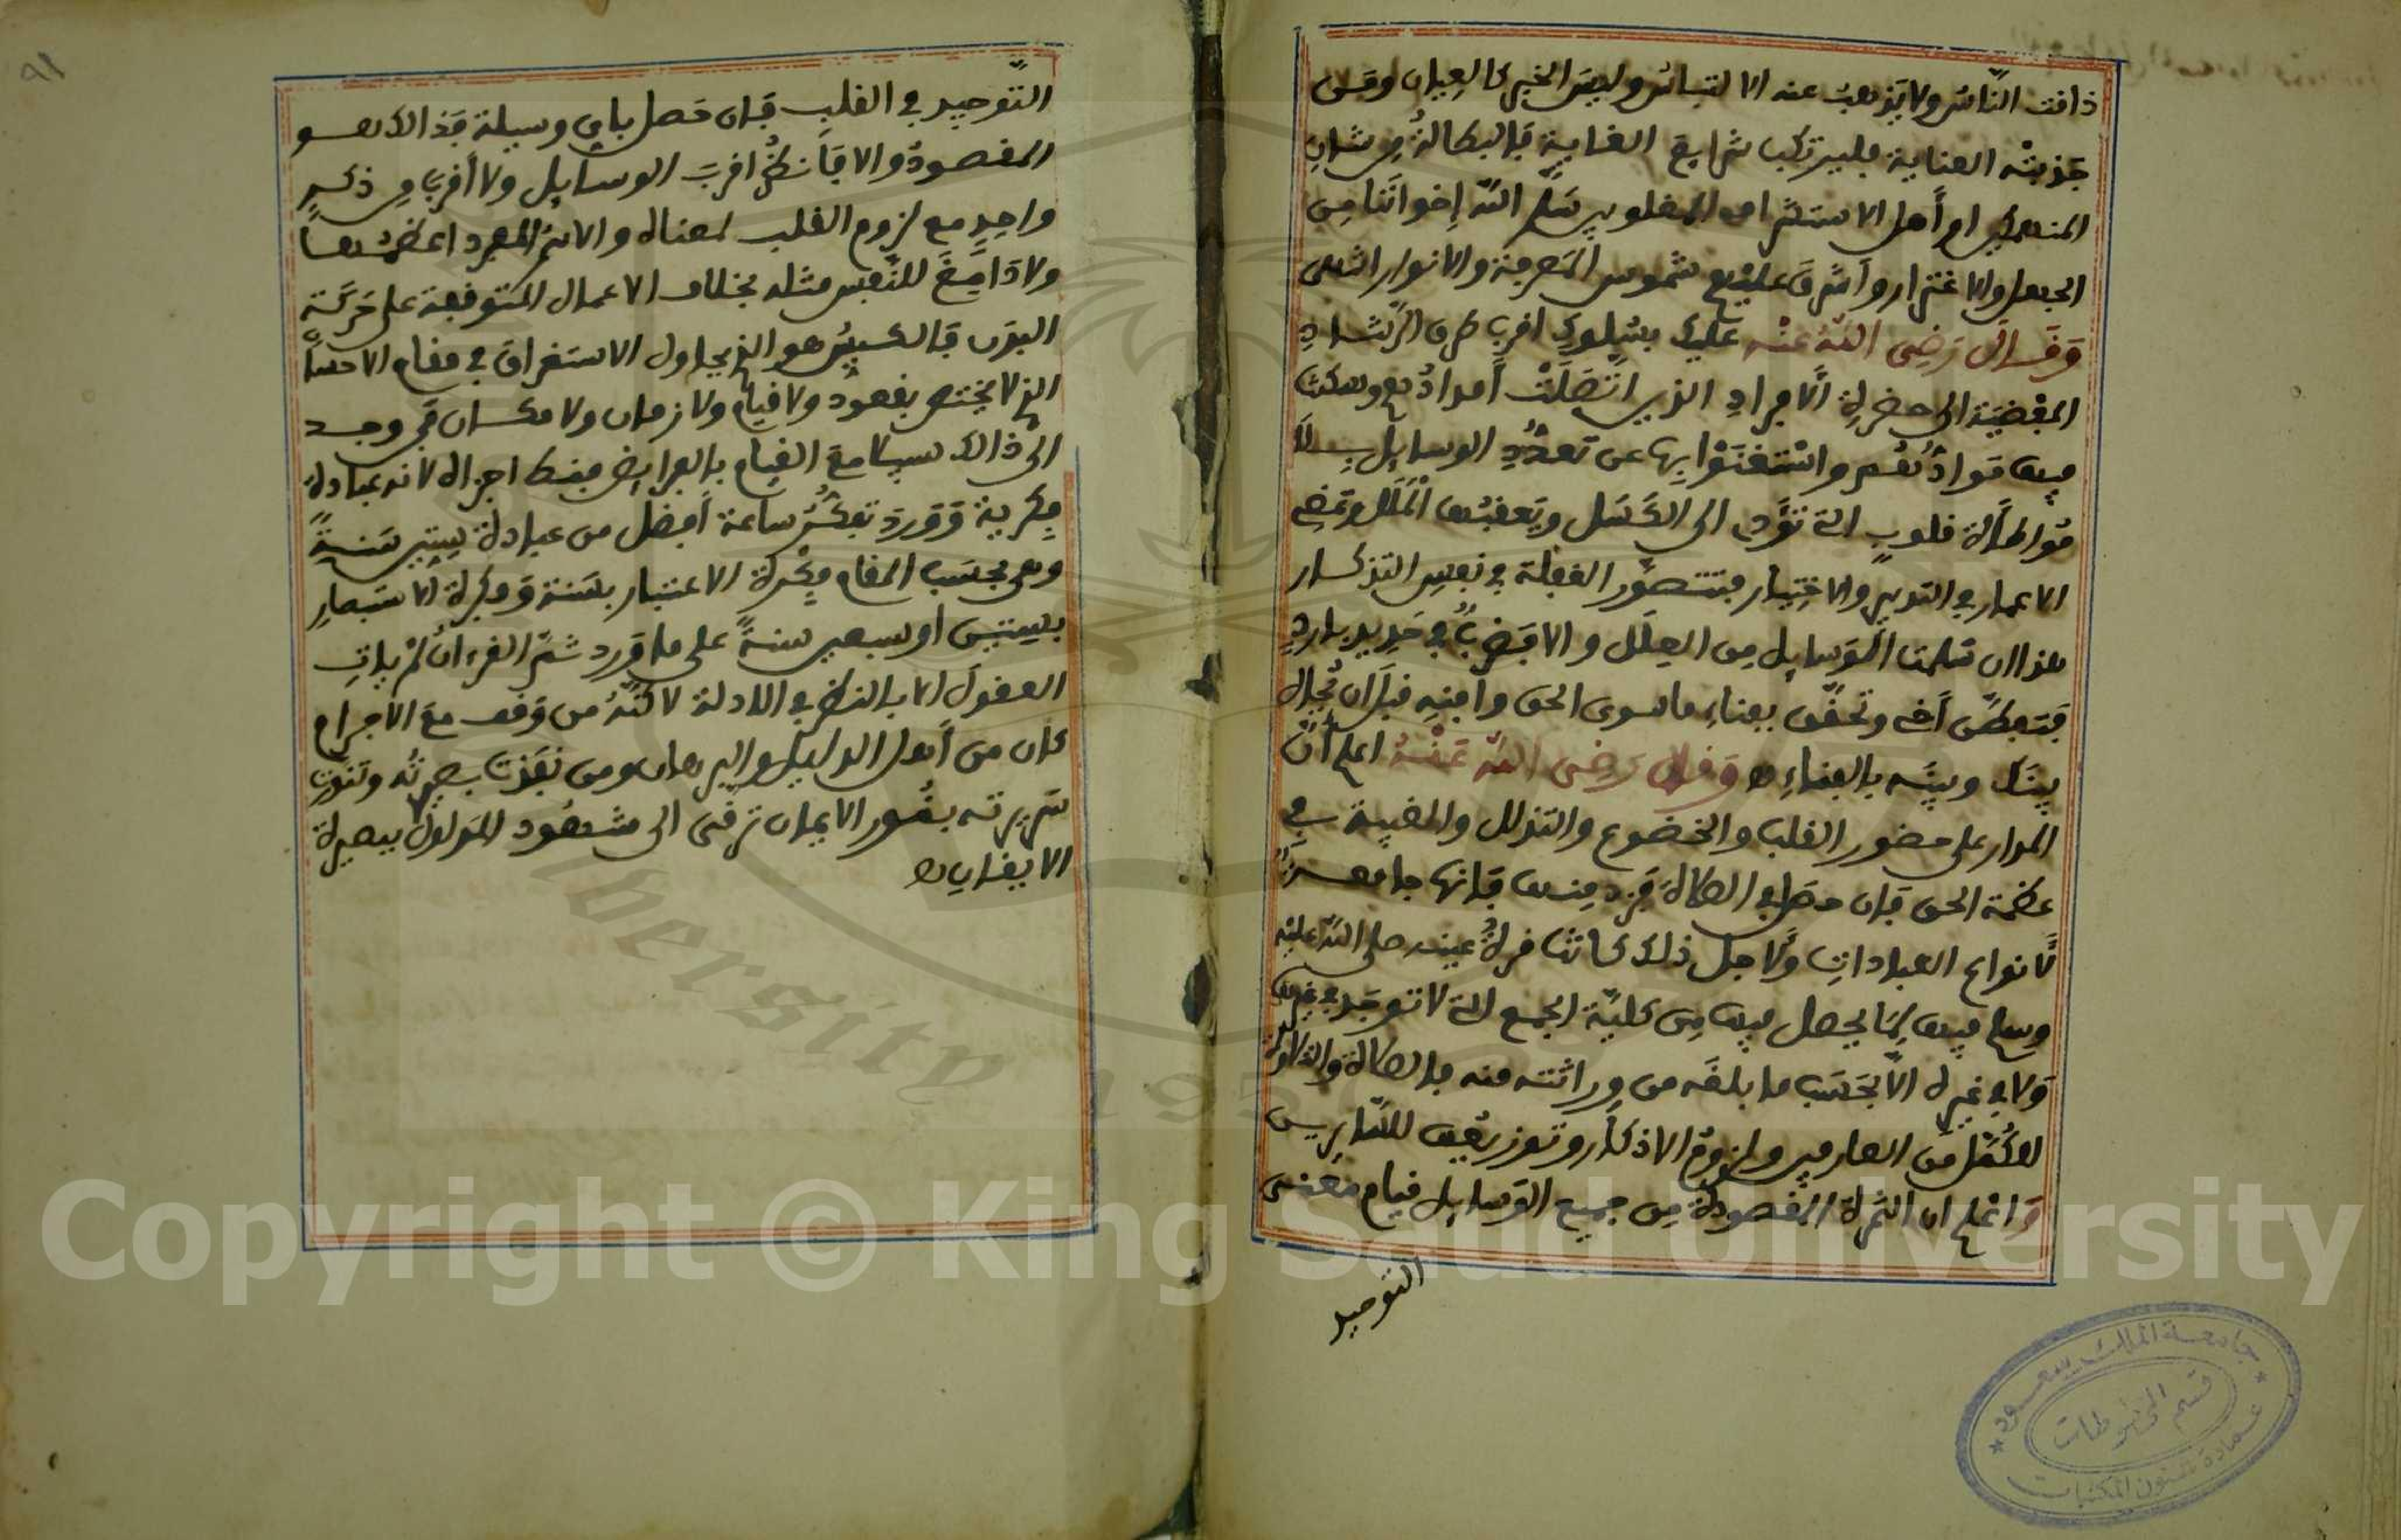 ذافت الناس ولا يذهب عنه الالتباس وليس الخبر كالعيان ومن
جذبته العناية فليرتكب شرايع الغاية فالبطالة من شان
المنهمكين ام أهل الاستشراف المفلوبين سلم الله إخواننا من
الجهل والاغترار وأشرق عليهم شموس المعرفة والانوار انتهى
وقال رضي الله عنه عليك بسلوك اقرب طرق الرشاد
المفضية الى حضرة الافراد الذين اتصلت أمدادهم وسكنت
فيها موادهم واستغنوا بها عن تعدد الوسايل بلا
مواطاة قلوب التي تؤدي الى الكسل ويعقبها الملل وتمضي
الاعمار في التدبير والاختيار فتتصور الغفلة في نفس التذكار
هذا ان سلمت الوسايل من العلل والا فضرب في حديد بارد
فتفطن أخي وتحقق بفناء ما سوى الحق وافنه قبل ان يحال
بينك وبينه بالفناء وقال رضي الله عنه اعلم أن
المدار على حضور القلب والخضوع والتذلل والغيبة في
عظمة الحق فان حصل في الصلاة فزد منها فانها جامعة
لانواع العبادات ولاجل ذلك كانت قرة عينه صلى الله عليه
وسلم فيها لما يحصل فيها من كلية الجمع التي لا توجد في غيرها
ولا في غيره الا بحسب ما بلغه من وراثته منه فالصلاة والتلاوة
للكمل من العارفين ولزوم الاذكار وتوزيعها للسايرين
واعلم ان الثمرة المقصودة من جميع الوسايل قيام معنى
التوحيد
التوحيد في القلب فان حصل باي وسيلة فذالك هو
المقصود والا فانظر اقرب الوسايل ولا أقرب من ذكر
واحد مع لزوم القلب لمعناه والاسم المفرد اعظمها
ولا دامغ للنفس مثله بخلاف الاعمال المتوقفة على حركة
البدن فالكيس هو الذي يحاول الاستغراق في مقام الاحسان
الذي لا يختص بقعود ولا قيام ولا زمان ولا مكان فمن وجد
الى ذالك سبيلا مع القيام بالفرايض فقط اجزاه لانه عبادة
فكرية وورد تفكر ساعة أفضل من عبادة ستين سنة
وهي بحسب المقام ففكرة الاعتبار بسنة وفكرة الاستبصار
بستين او سبعين سنة على ما ورد ثم القرءان لم يات
العقول الا بالنظر في الادلة لاكنه من وقف مع الاجرام
كان من أهل الدليل والبرهان ومن نفذت بصيرته وتنورت
سريرته بنور الايمان ترقى الى مشهود المدلول ببصيرة
الايقان
جامعة الملك سعود
قسم المخطوطات
عمادة شئون المكتبات
Copyright © King Saud University